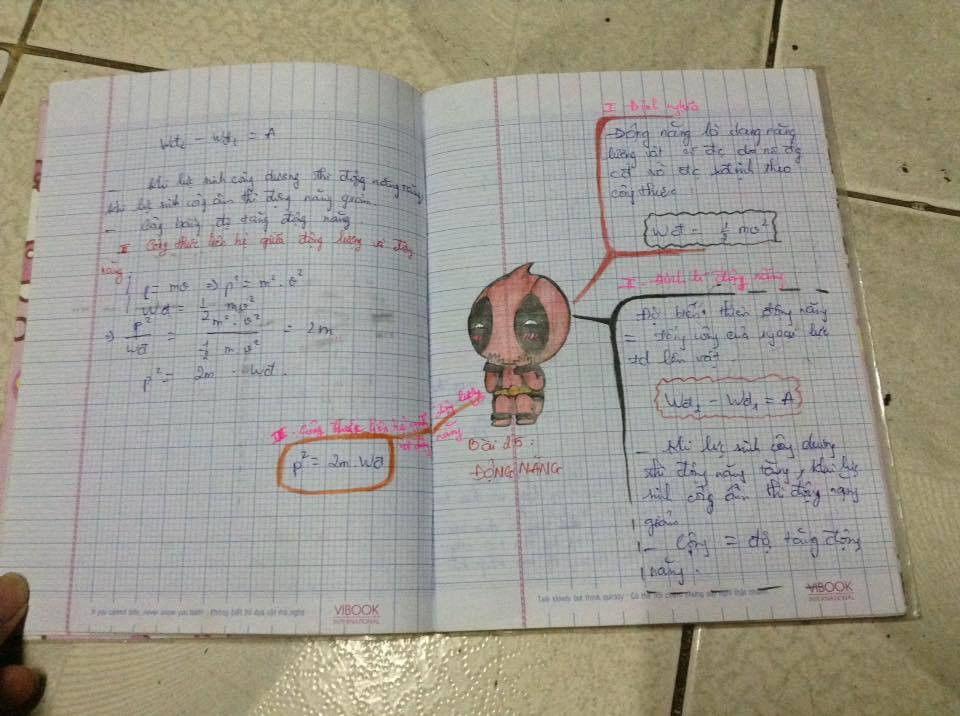 Wđ₂ - Wđ₁ = A
- Khi lực sinh công dương thì động năng tăng,
khi lực sinh công âm thì động năng giảm.
- Công bằng độ tăng động năng
III Công thức liên hệ giữa động lượng và động
năng
p = mv ⇒ p² = m². v²
Wđ = 1/2 mv²
⇒ p²/Wđ = m². v² / 1/2 m v² = 2m
p² = 2m . Wđ.
III. Công thức liên hệ động lượng
động năng
p² = 2m. Wđ
Bài 25:
ĐỘNG NĂNG
I Định nghĩa
Động năng là dạng năng
lượng vật có đc do nó đg
cđ và đc xđịnh theo
công thức
Wđ = 1/2 mv²
II. Định lí động năng
Độ biến thiên động năng
= tổng công của ngoại lực
td lên vật
Wđ₂ - Wđ₁ = A
- Khi lực sinh công dương
thì động năng tăng, khi lực
sinh công âm thì động năng
giảm
- Công = độ tăng động
năng.
If you cannot bite, never show you teeth - Không biết thì dựa cột mà nghe
VIBOOK
INTERNATIONAL
Talk slowly but think quickly - Có thể nói chậm nhưng phải nghĩ thật nhanh
VIBOOK
INTERNATIONAL